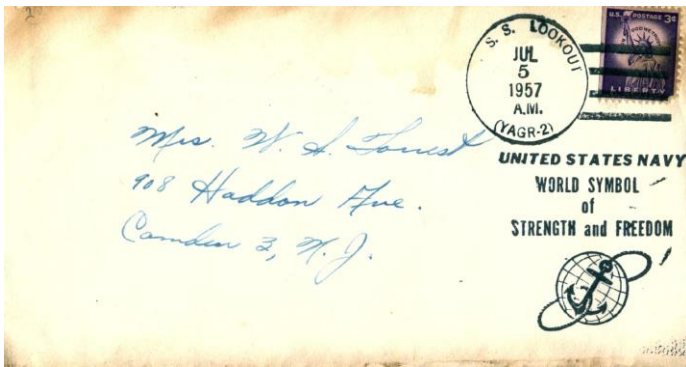 S. S. LOOKOUT
JUL
5
1957
A.M.
(YAGR-2)
U.S. POSTAGE 3¢
IN GOD WE TRUST
LIBERTY
Mrs. W. A. Forrest
908 Haddon Ave.
Camden 3, N. J.
UNITED STATES NAVY
WORLD SYMBOL
of
STRENGTH and FREEDOM